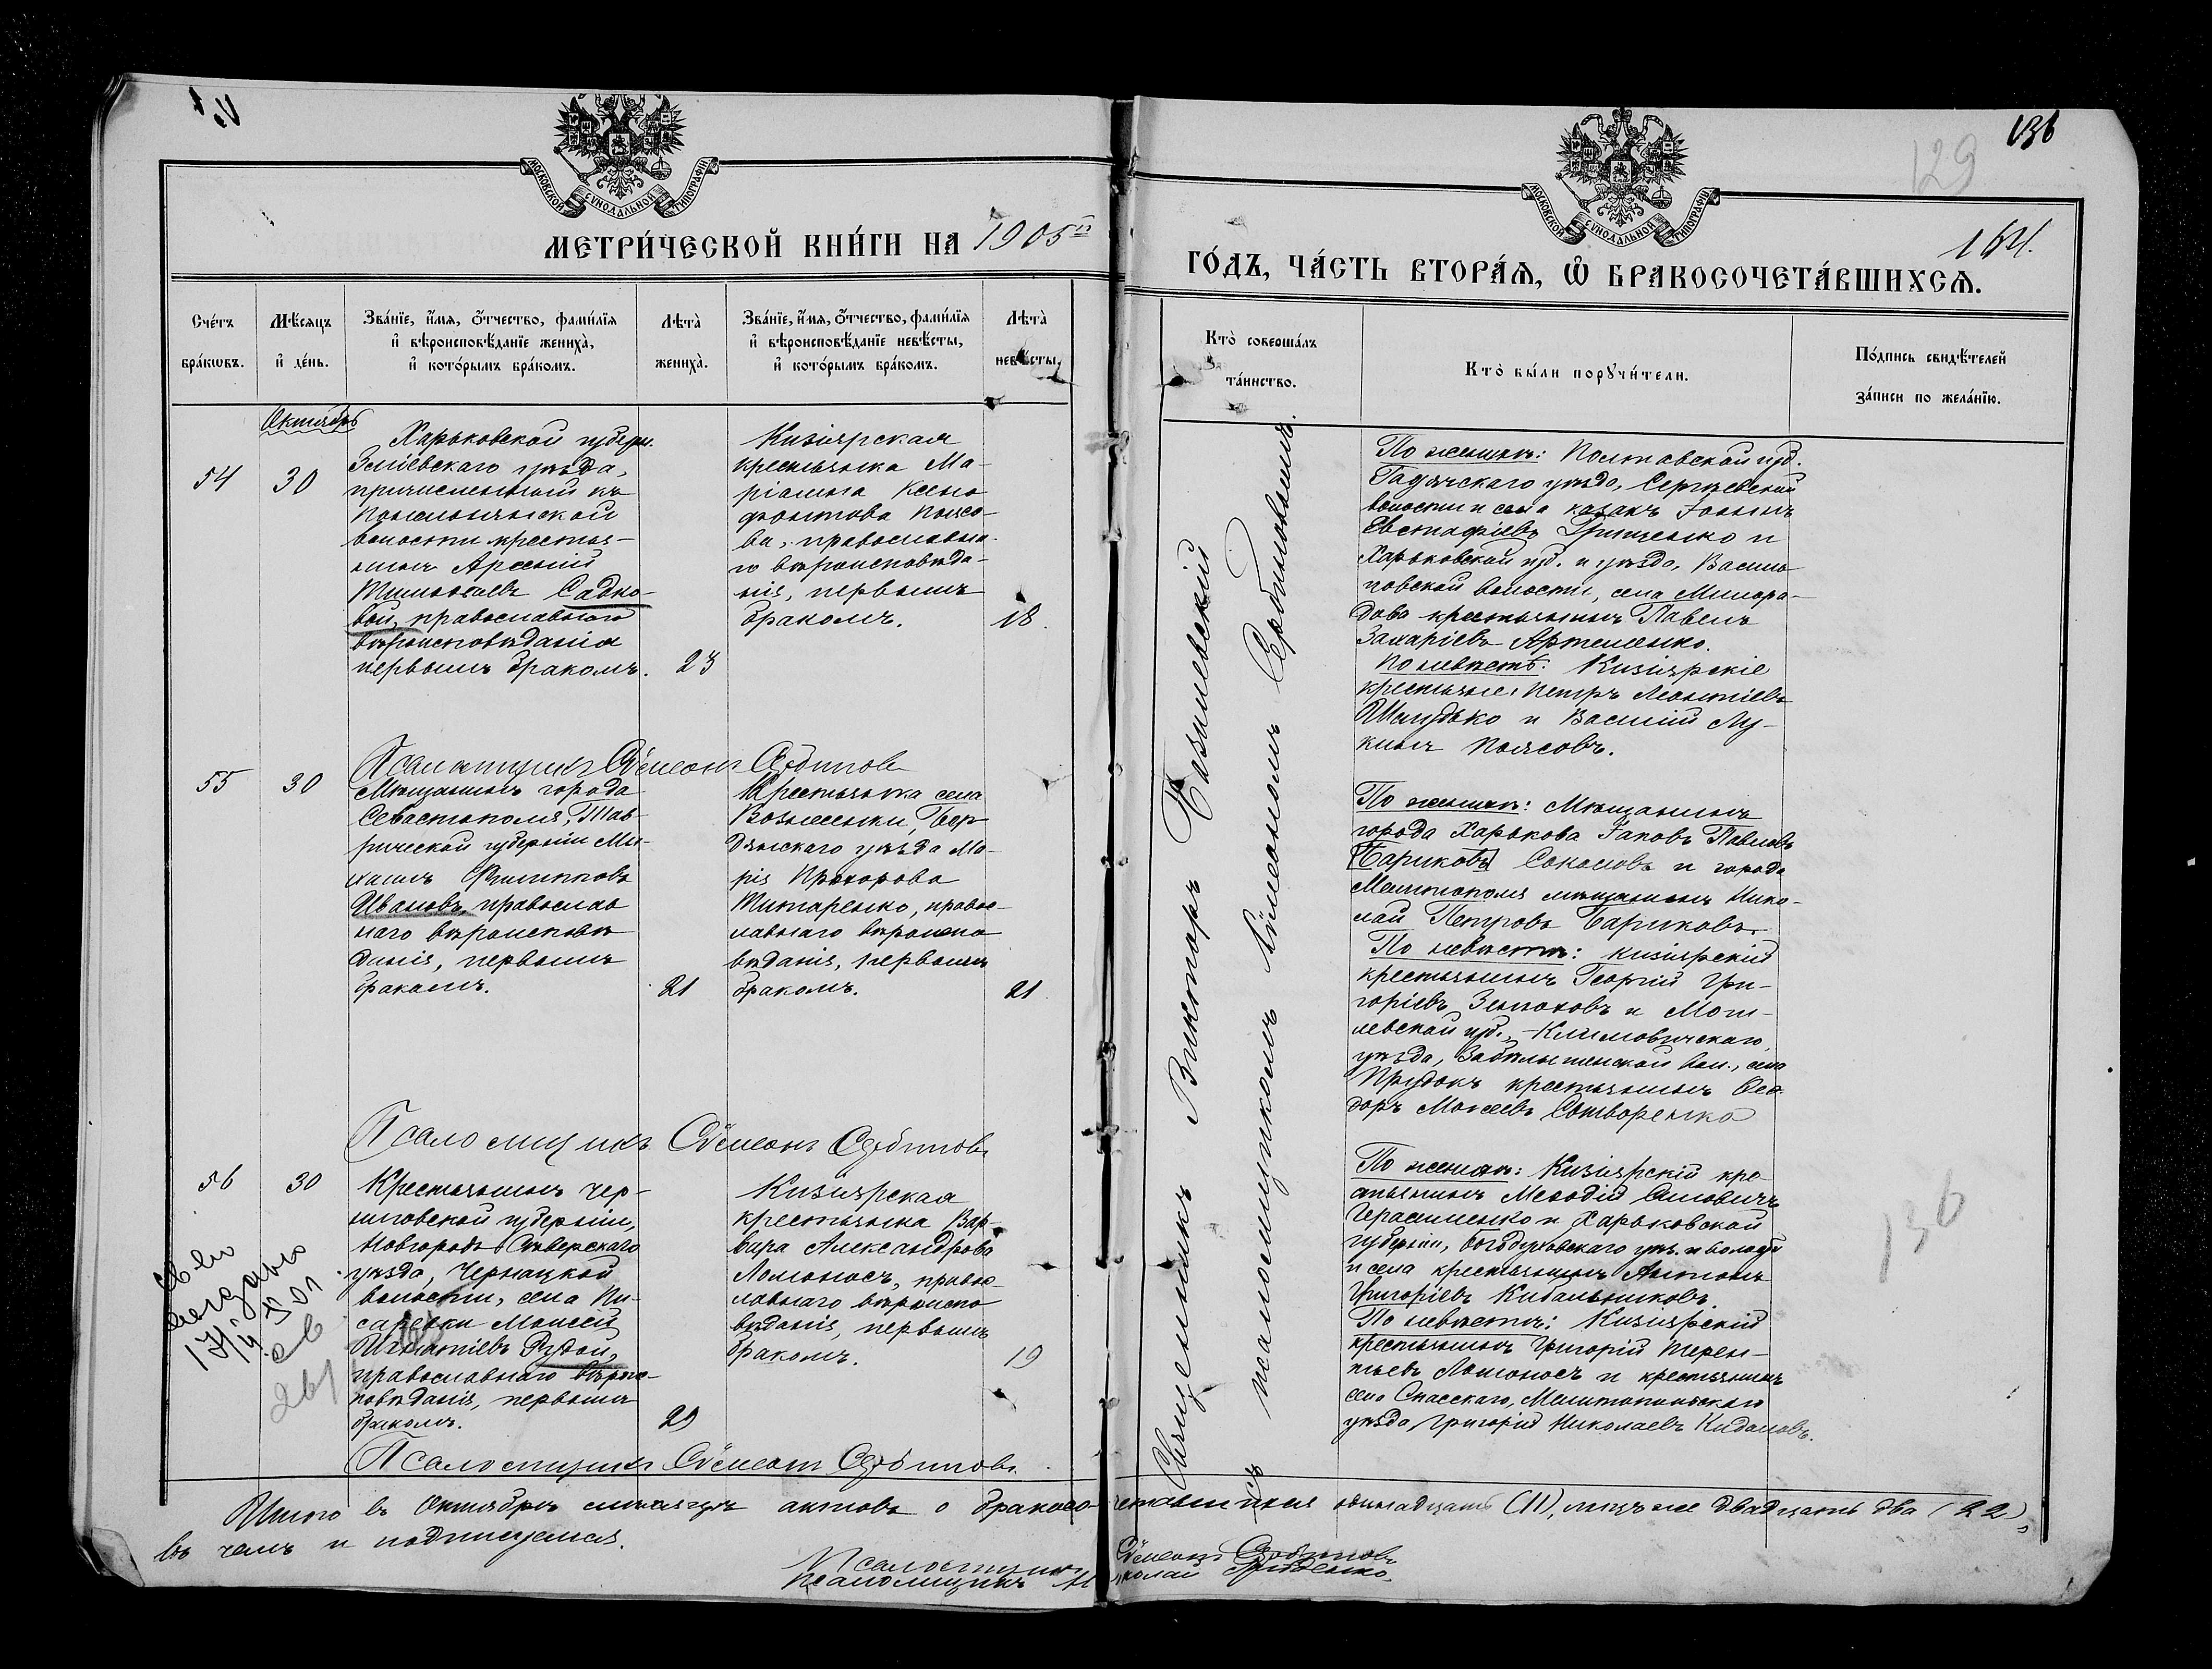 136
129
164.
МОСКОВСКОЙ СУНОДАЛЬНОЙ ТИПОГРАФIИ
МОСКОВСКОЙ СУНОДАЛЬНОЙ ТИПОГРАФIИ
МЕТРИ́ЧЕСКОЙ КНИ́ГИ НА 1905й
ГО́ДЪ, ЧА́СТЬ ВТОРА́Ѧ, Ѡ БРАКОСОЧЕТА́ВШИХСѦ.
Сче́тъ
бра́кѡвъ.
Мѣ́сяцъ
и҆ де́нь.
Зва́нїе, и҆́мя, ѻ҆́тчество, фами́лїя
и҆ вѣроисповѣ́данїе жениха̀,
и҆ кото́рымъ бра́комъ.
Лѣта̀
жениха̀.
Зва́нїе, и҆́мя, ѻ҆́тчество, фами́лїя
и҆ вѣроисповѣ́данїе невѣ́сты,
и҆ кото́рымъ бра́комъ.
Лѣта̀
невѣ́сты.
Кто̀ соверша́лъ
та́инство.
Кто̀ бы́ли порꙋчи́тели.
По́дпись свидѣ́телей
за́писи по жела́нїю.
Октябрь
54
30
Харьковской губерн.
Зміевскаго уѣзда,
причисленный къ
волости крестья-
нинъ Арсеній
Садко-
вой, православнаго
вѣроисповѣданія
первымъ бракомъ.
23
Кизіярская
крестьянка Ма-
ріанна Ксено
фонтова Поясо-
ва, православна-
го вѣроисповѣда-
нія, первымъ
бракомъ.
18.
По женихѣ: Полтавской губ.
Гадячскаго уѣзда, Сергѣевской
волости и села казакъ Іоаннъ
Евстафіевъ Гриценко и
Харьковской губ. и уѣзда, Васи-
повской волости, села
крестьянинъ Павелъ
Захаріевъ Артеменко.
По невѣстѣ: Кизіярскіе
крестьяне: Петръ Леонтіевъ
Шелудько и Василій Лу-
кинъ Поясовъ.
Псаломщикъ Сѵмеонъ Сербиновъ
55
30
Мѣщанинъ города
Севастополя, Тав-
рической губерніи Ми-
хаилъ Филипповъ
Ивановъ, православ
наго вѣроисповѣ
данія, первымъ
бракомъ.
21
Крестьянка села
Вознесенки, Бер
дянскаго уѣзда Ма-
рія Прохорова
Титаренко, правос-
лавнаго вѣроиспо
вѣданія, первымъ
бракомъ.
21
По женихѣ: Мѣщанинъ
города Харькова Іаковъ Павловъ
[Бариковъ] Соколовъ и города
Мелитополя мѣщанинъ Нико-
лай Петровъ Бариковъ.
По невѣстѣ: Кизіярскій
крестьянинъ Георгій Гри-
горіевъ и Моги-
левской губ., Климовичскаго
уѣзда, вол., села
Прудокъ крестьянинъ Ѳео-
доръ Моѵсеевъ Сотворенко
Псаломщикъ Сѵмеонъ Сербиновъ
56
30
Крестьянинъ Чер-
ниговской губерніи,
Новгородъ Сѣверскаго
уѣзда, Чернацкой
волости, села Пи-
саревки Моисей
Игнатіевъ Рудой,
православнаго вѣроис-
повѣданія, первымъ
бракомъ.
29
Кизіярская
крестьянка Вар-
вара Александрова
Ломоносъ, правос-
лавнаго вѣроиспо
вѣданія, первымъ
бракомъ.
19
По женихѣ: Кизіярскій кре-
стьянинъ Меѳодій
Герасименко и Харьковской
губерніи, Богодуховскаго уѣз. и волости
и села крестьянинъ Антонъ
Григоріевъ Кибальниковъ.
По невѣстѣ: Кизіярскій
крестьянинъ Григорій Терен-
тьевъ Ломоносъ и крестьянинъ
села Спасскаго, Мелитопольскаго
уѣзда Григорій Николаевъ Кидаловъ.
136
Псаломщикъ Сѵмеонъ Сербиновъ.
Священникъ Викторъ Базилевскій
съ псаломщикомъ Сѵмеономъ Сербиновымъ.
Итого въ Октябрѣ мѣсяцѣ актовъ о бракосочетавшихся одинадцать (11), лицъ же двадцать два (22),
въ чемъ и подписуемся.
Псаломщикъ Сѵмеонъ Сербиновъ
Псаломщикъ Николай